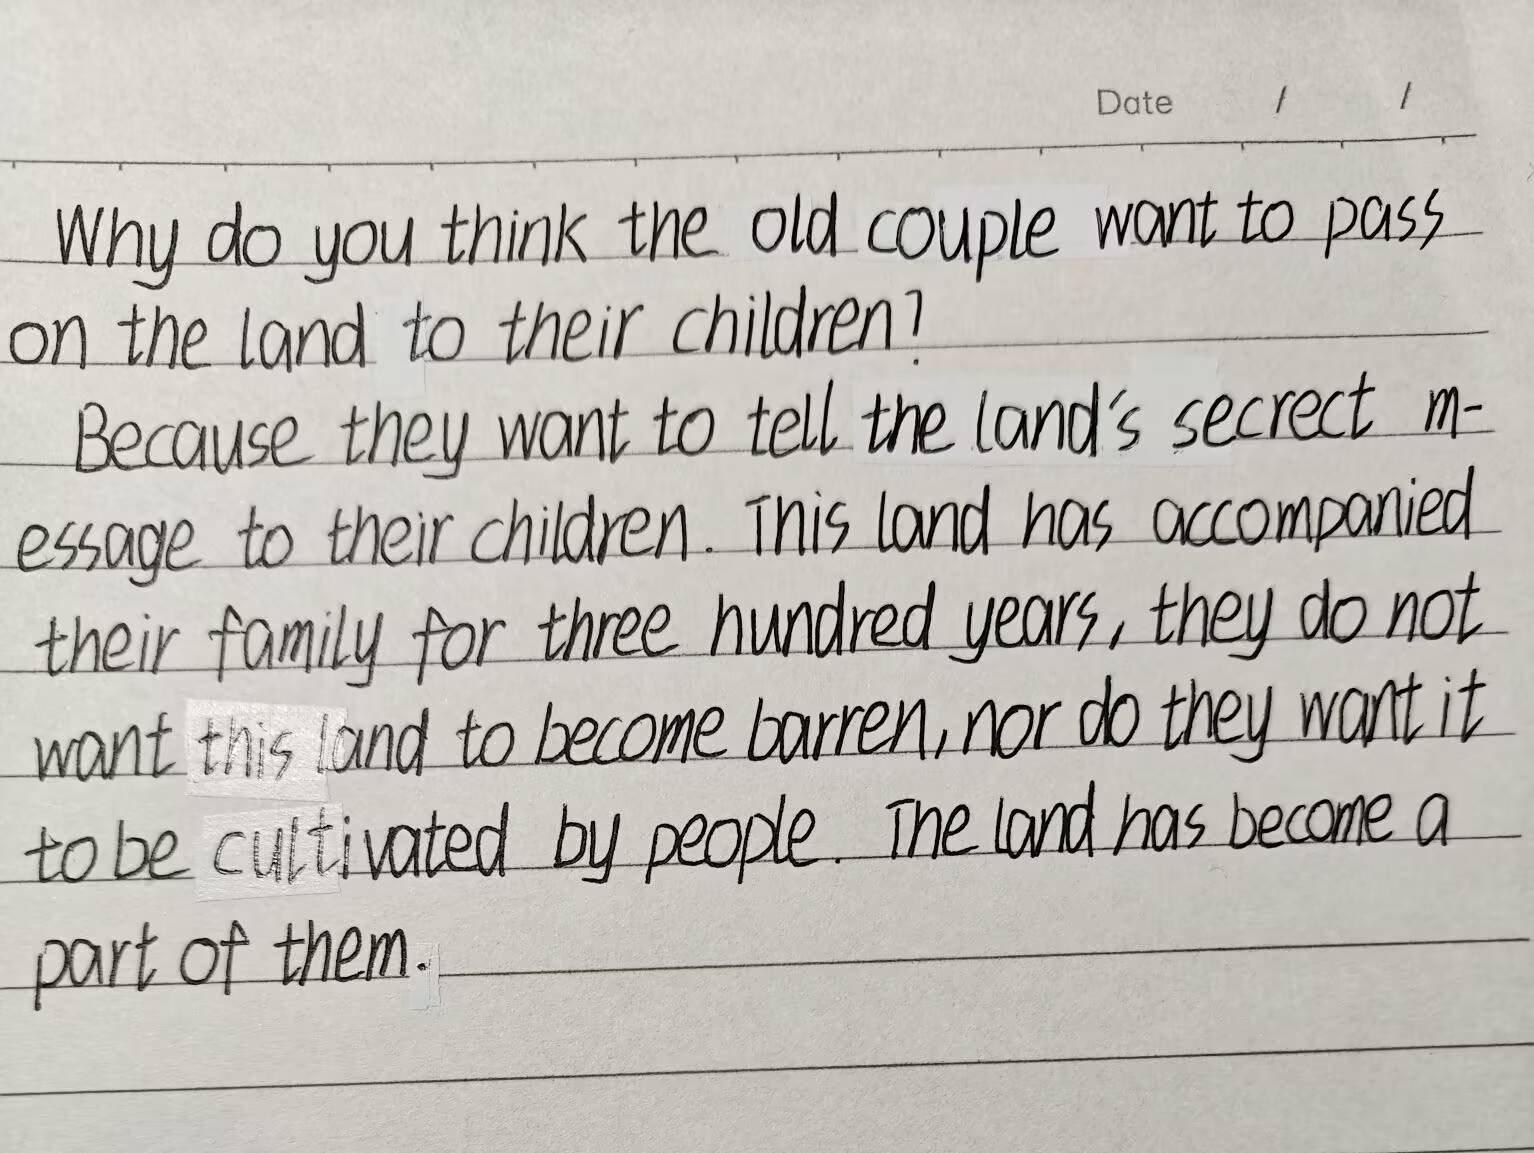 Date / /
Why do you think the old couple want to pass
on the land to their children?
Because they want to tell the land's secrect m-
essage to their children. This land has accompanied
their family for three hundred years, they do not
want this land to become barren, nor do they want it
to be cultivated by people. The land has become a
part of them.